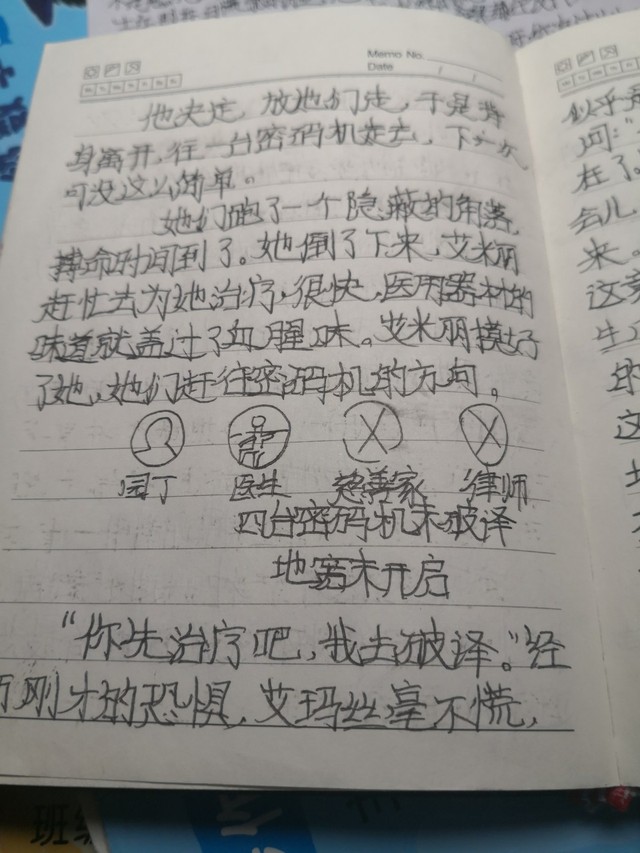 Memo No.
Date / /
他决定,放她们走,于是背
身离开,往一台密码机走去,下一次
可没这么简单。
她们跑了一个隐蔽的角落,
搏命时间到了。她倒了下来,艾米丽
赶忙去为她治疗,很快,医用器材的
味道就盖过了血腥味。艾米丽摸好
了她,她们赶往密码机的方向。
园丁 医生 慈善家 律师
四台密码机未破译
地窖未开启
“你先治疗吧,我去破译。”经
历刚才的恐惧,艾玛丝毫不慌,
似乎
问:“
在了。
会儿,
来。
这
生
的
这
班